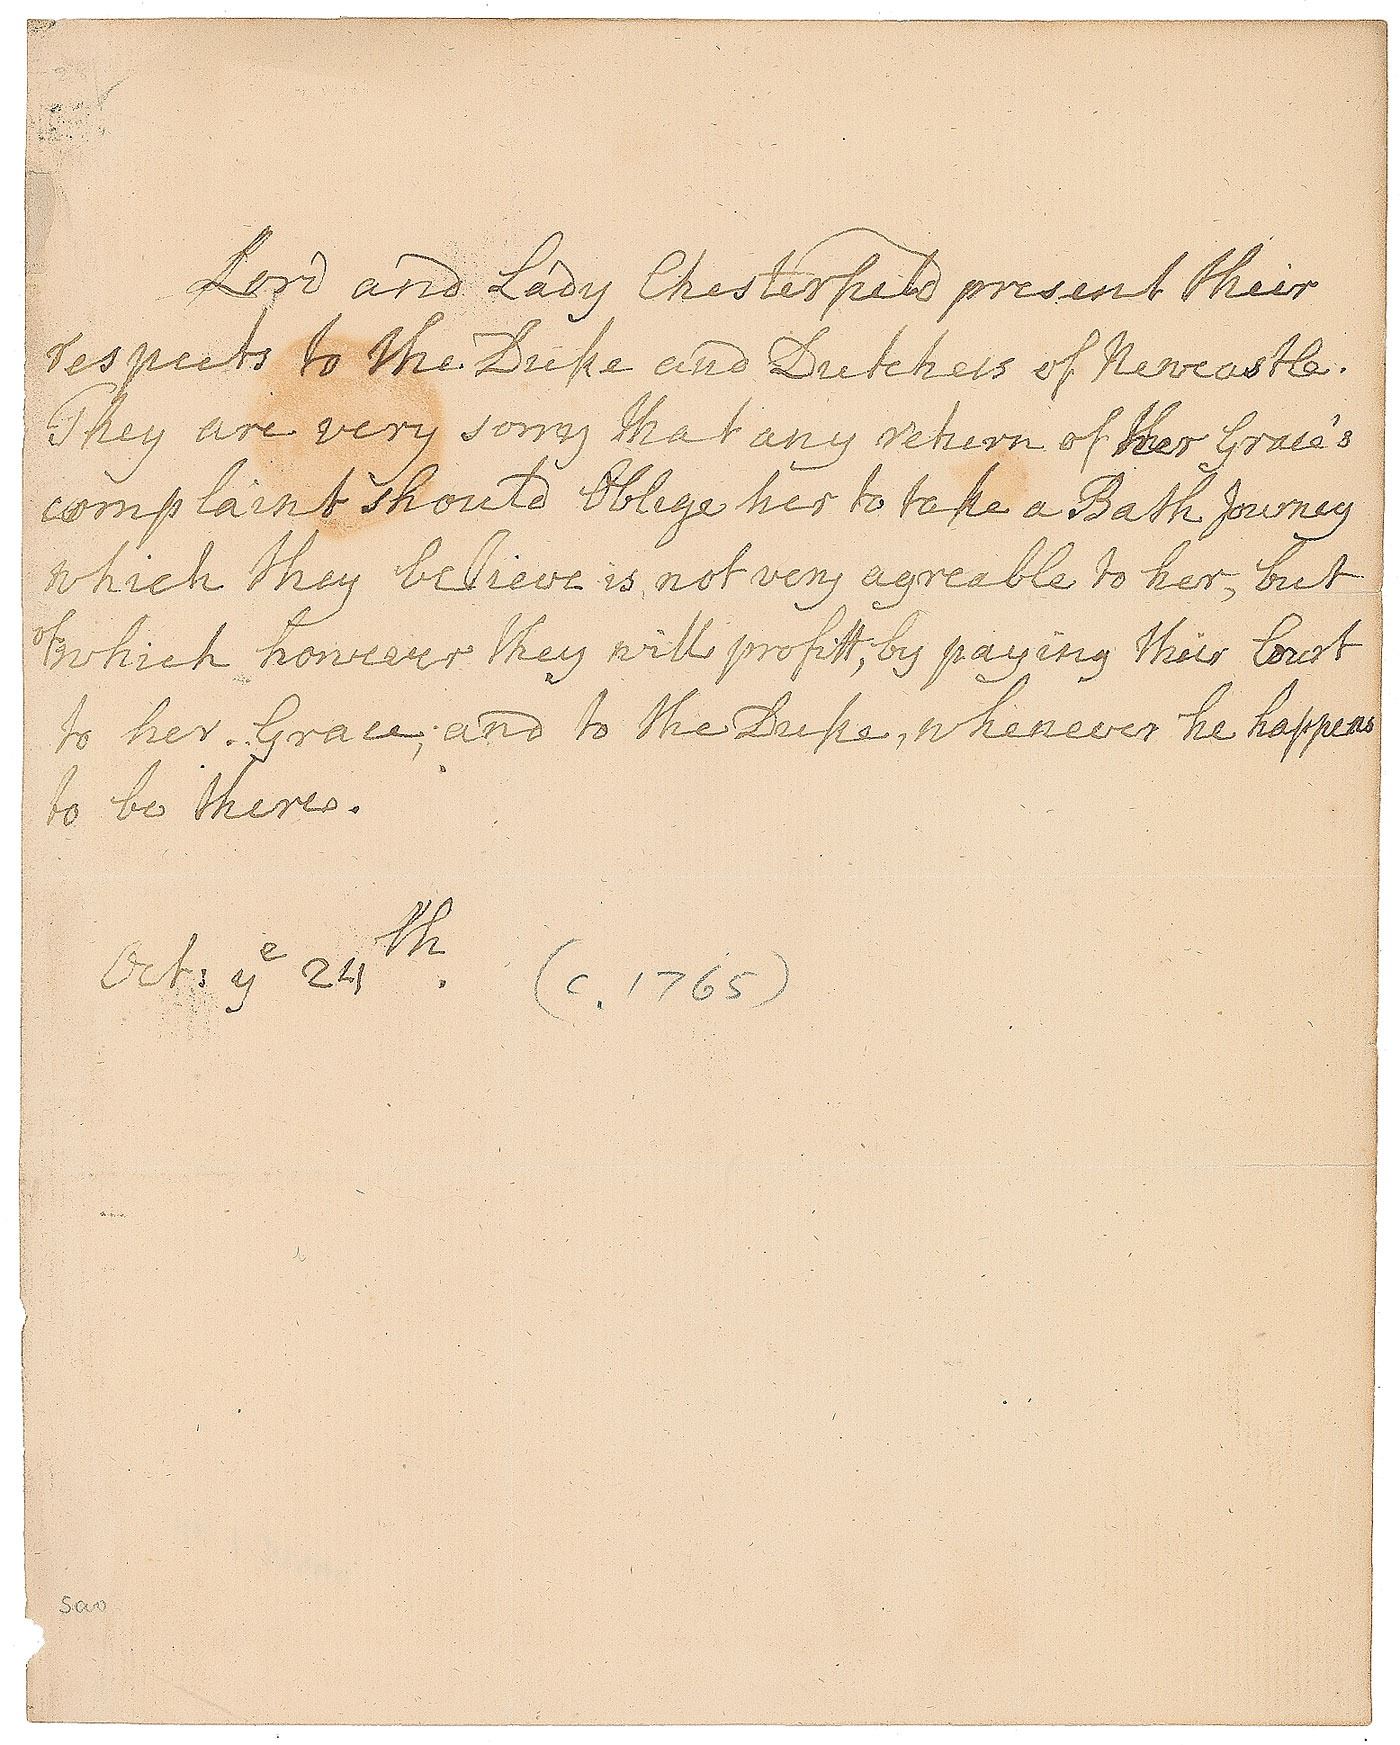 Lord and Lady Chesterfield present their
respects to the Duke and Dutchess of Newcastle.
They are very sorry that any return of Her Grace's
complaint should Oblige her to take a Bath Journey
which they believe is not very agreable to her, but
of which however they will profitt, by paying their Court
to her Grace, and to the Duke, whenever he happens
to be there.
Oct: yᵉ 24ᵗʰ. (c. 1765)